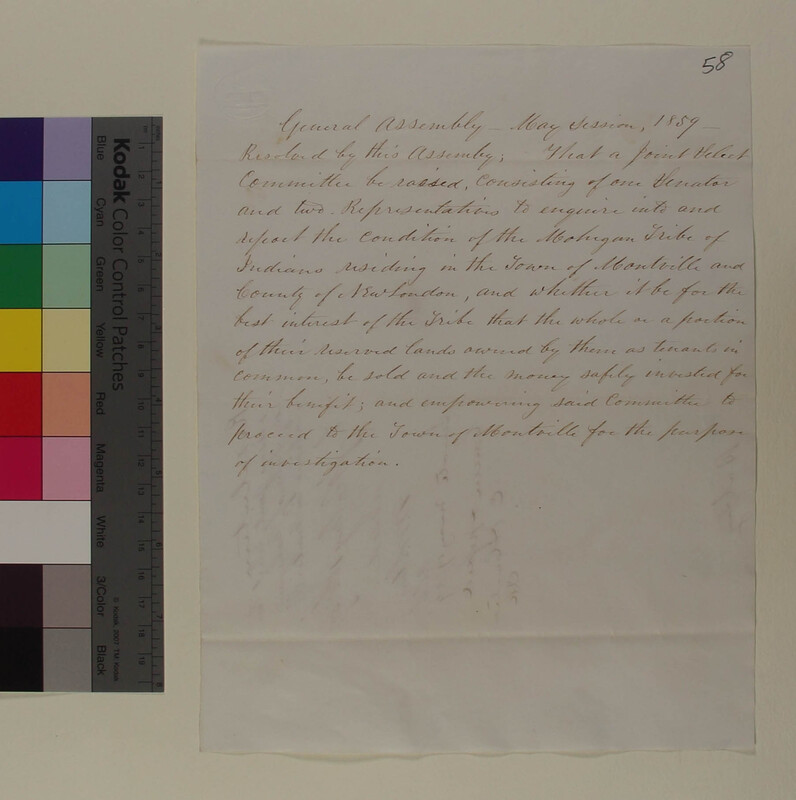 58
General Assembly – May Session, 1859 –
Resolved by this Assembly; That a Joint Select
Committee be raised, consisting of one Senator
and two Representatives to enquire into and
report the condition of the Mohegan Tribe of
Indians residing in the Town of Montville and
County of New London, and whether it be for the
best interest of the Tribe that the whole or a portion
of their reserved lands owned by them as tenants in
common, be sold and the money safely invested for
their benefit; and empowering said Committee to
proceed to the Town of Montville for the purpose
of investigation.
Kodak Color Control Patches
Blue
Cyan
Green
Yellow
Red
Magenta
White
3/Color
Black
© Kodak, 2007 TM: Kodak